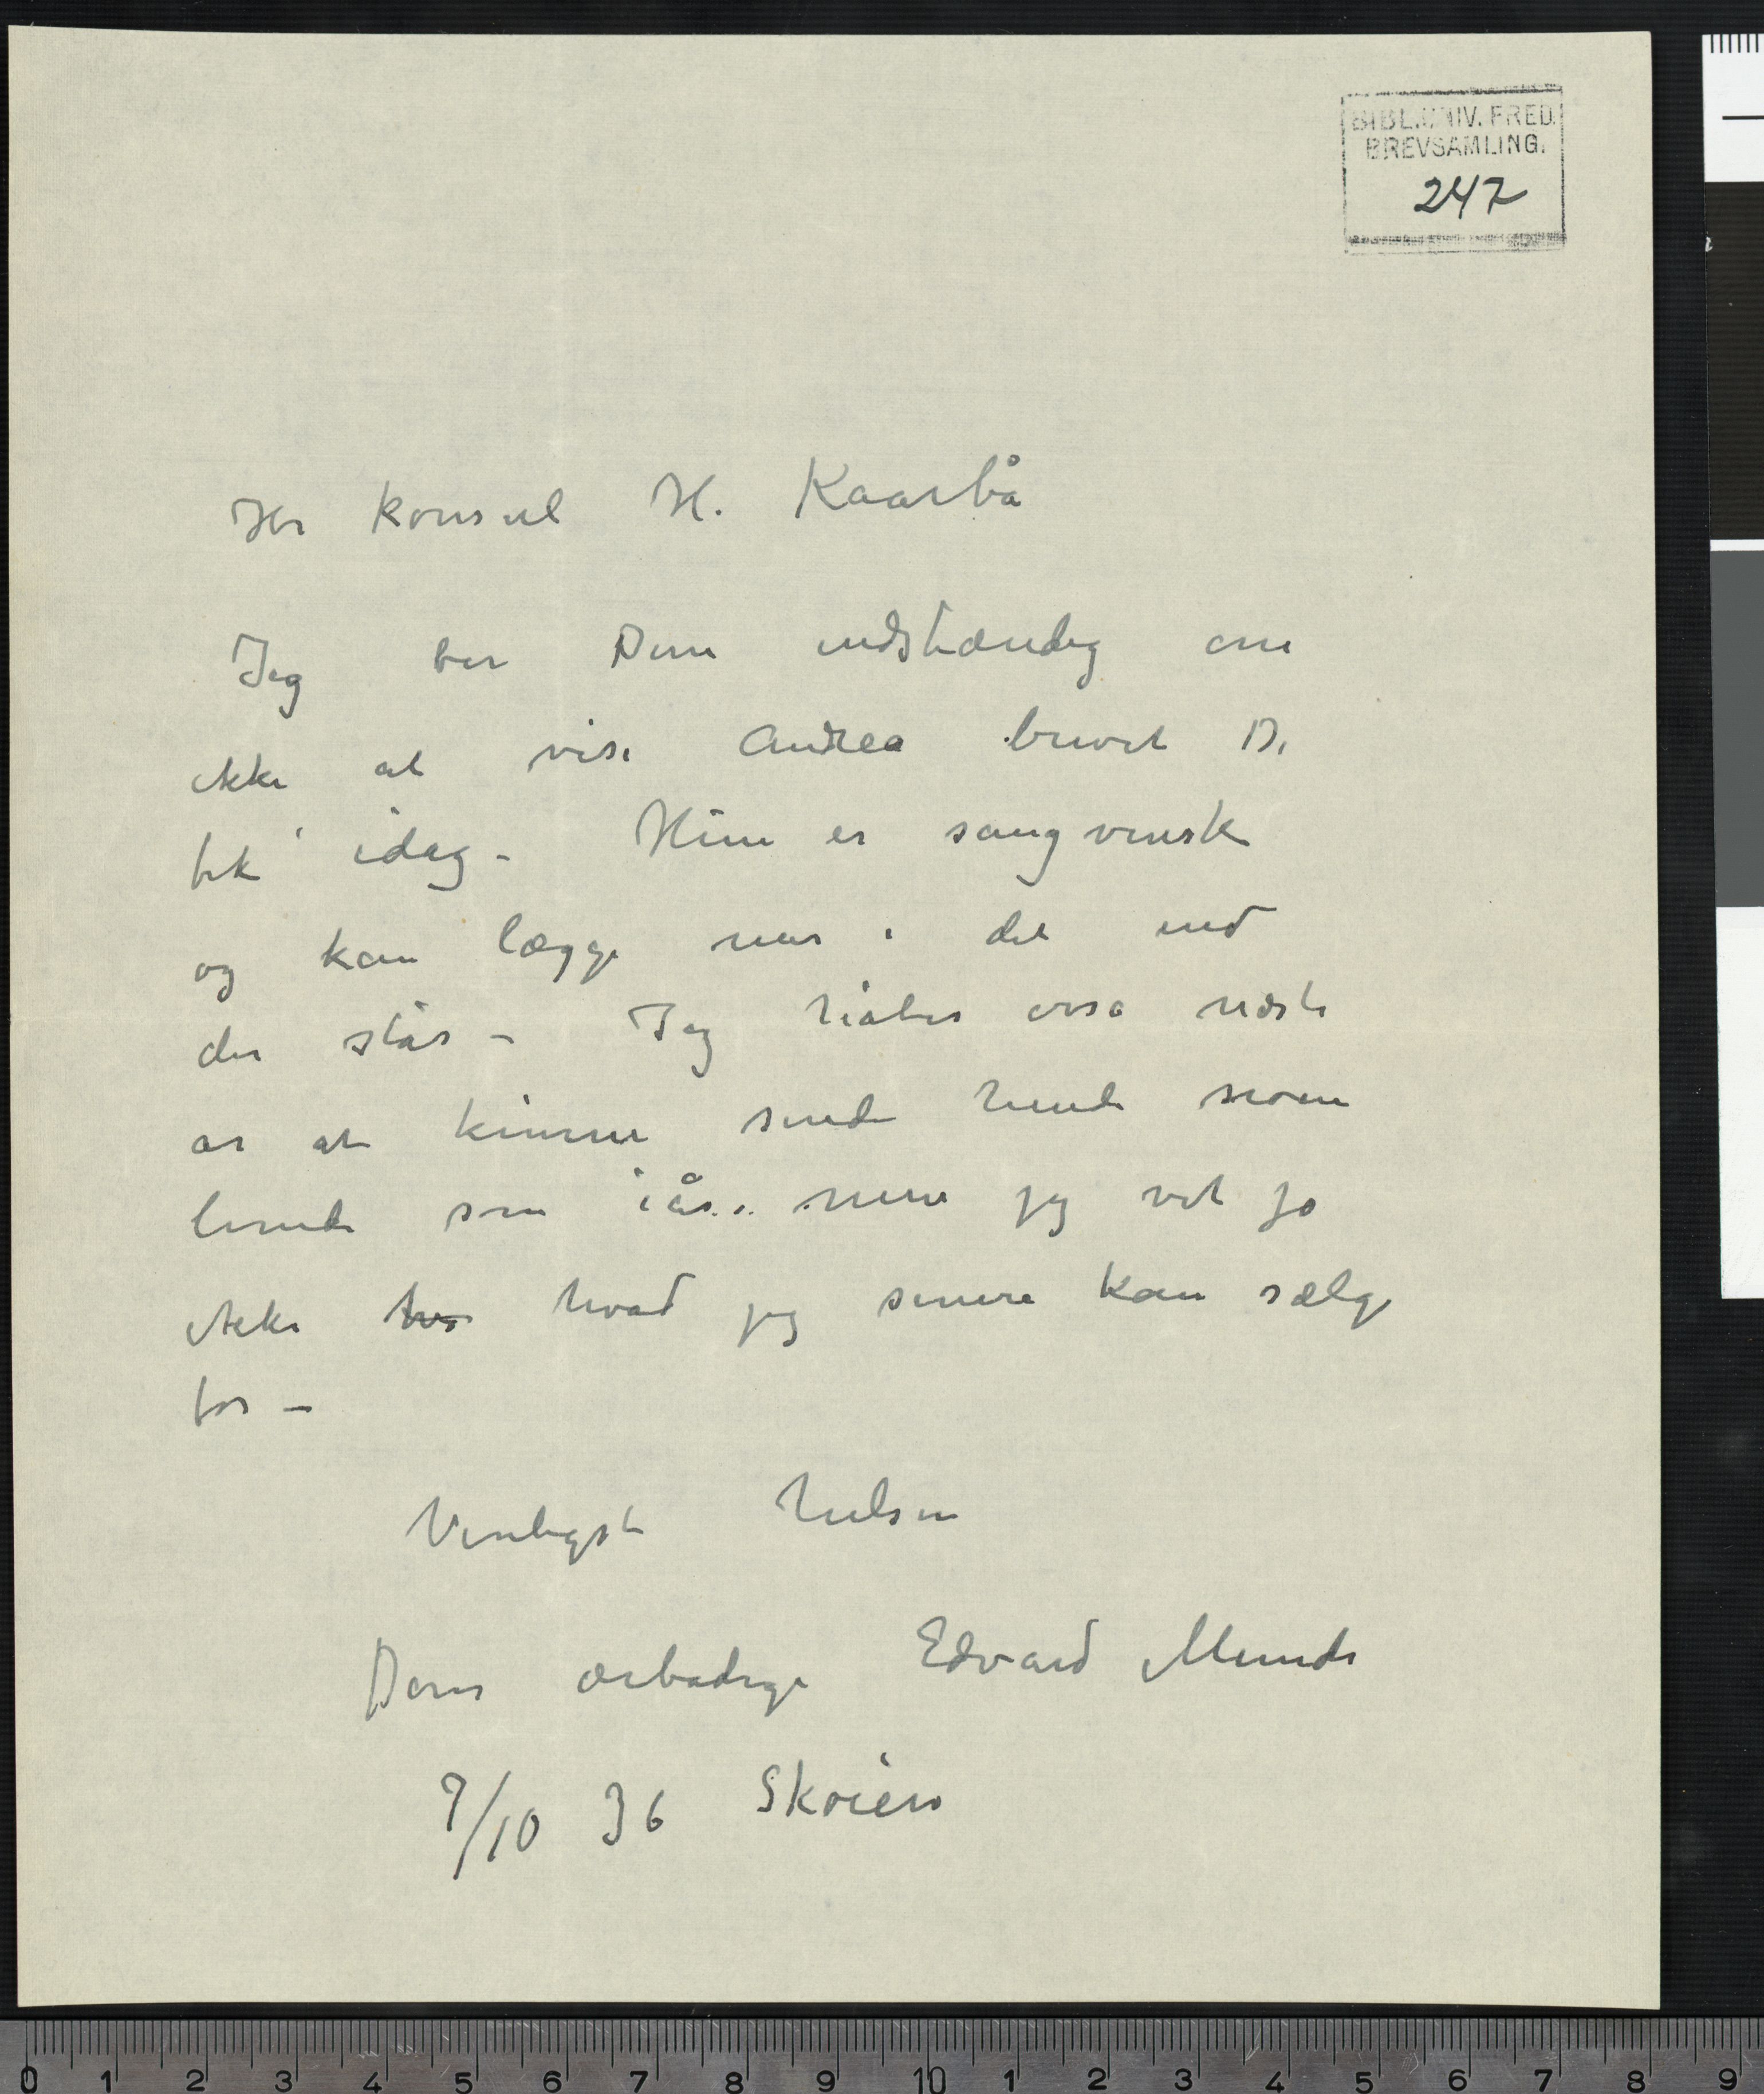 BIBL. UNIV. FRED.
BREVSAMLING.
247
Hr Konsul H. Kaarbå
Jeg ber Dem indstændig om
ikke at vise Andrea brevet De
fik idag – Hun er sangvinsk
og kan lægge mer i det end
der står – Jeg håber også næste
år at kunne sende hende noen
lunde som iår.. men jeg vet jo
ikke hvad jeg senere kan sælge
for –
Venligst hilsen
Deres ærbødige Edvard Munch
7/10 36 Skøien
0 1 2 3 4 5 6 7 8 9 10 1 2 3 4 5 6 7 8 9